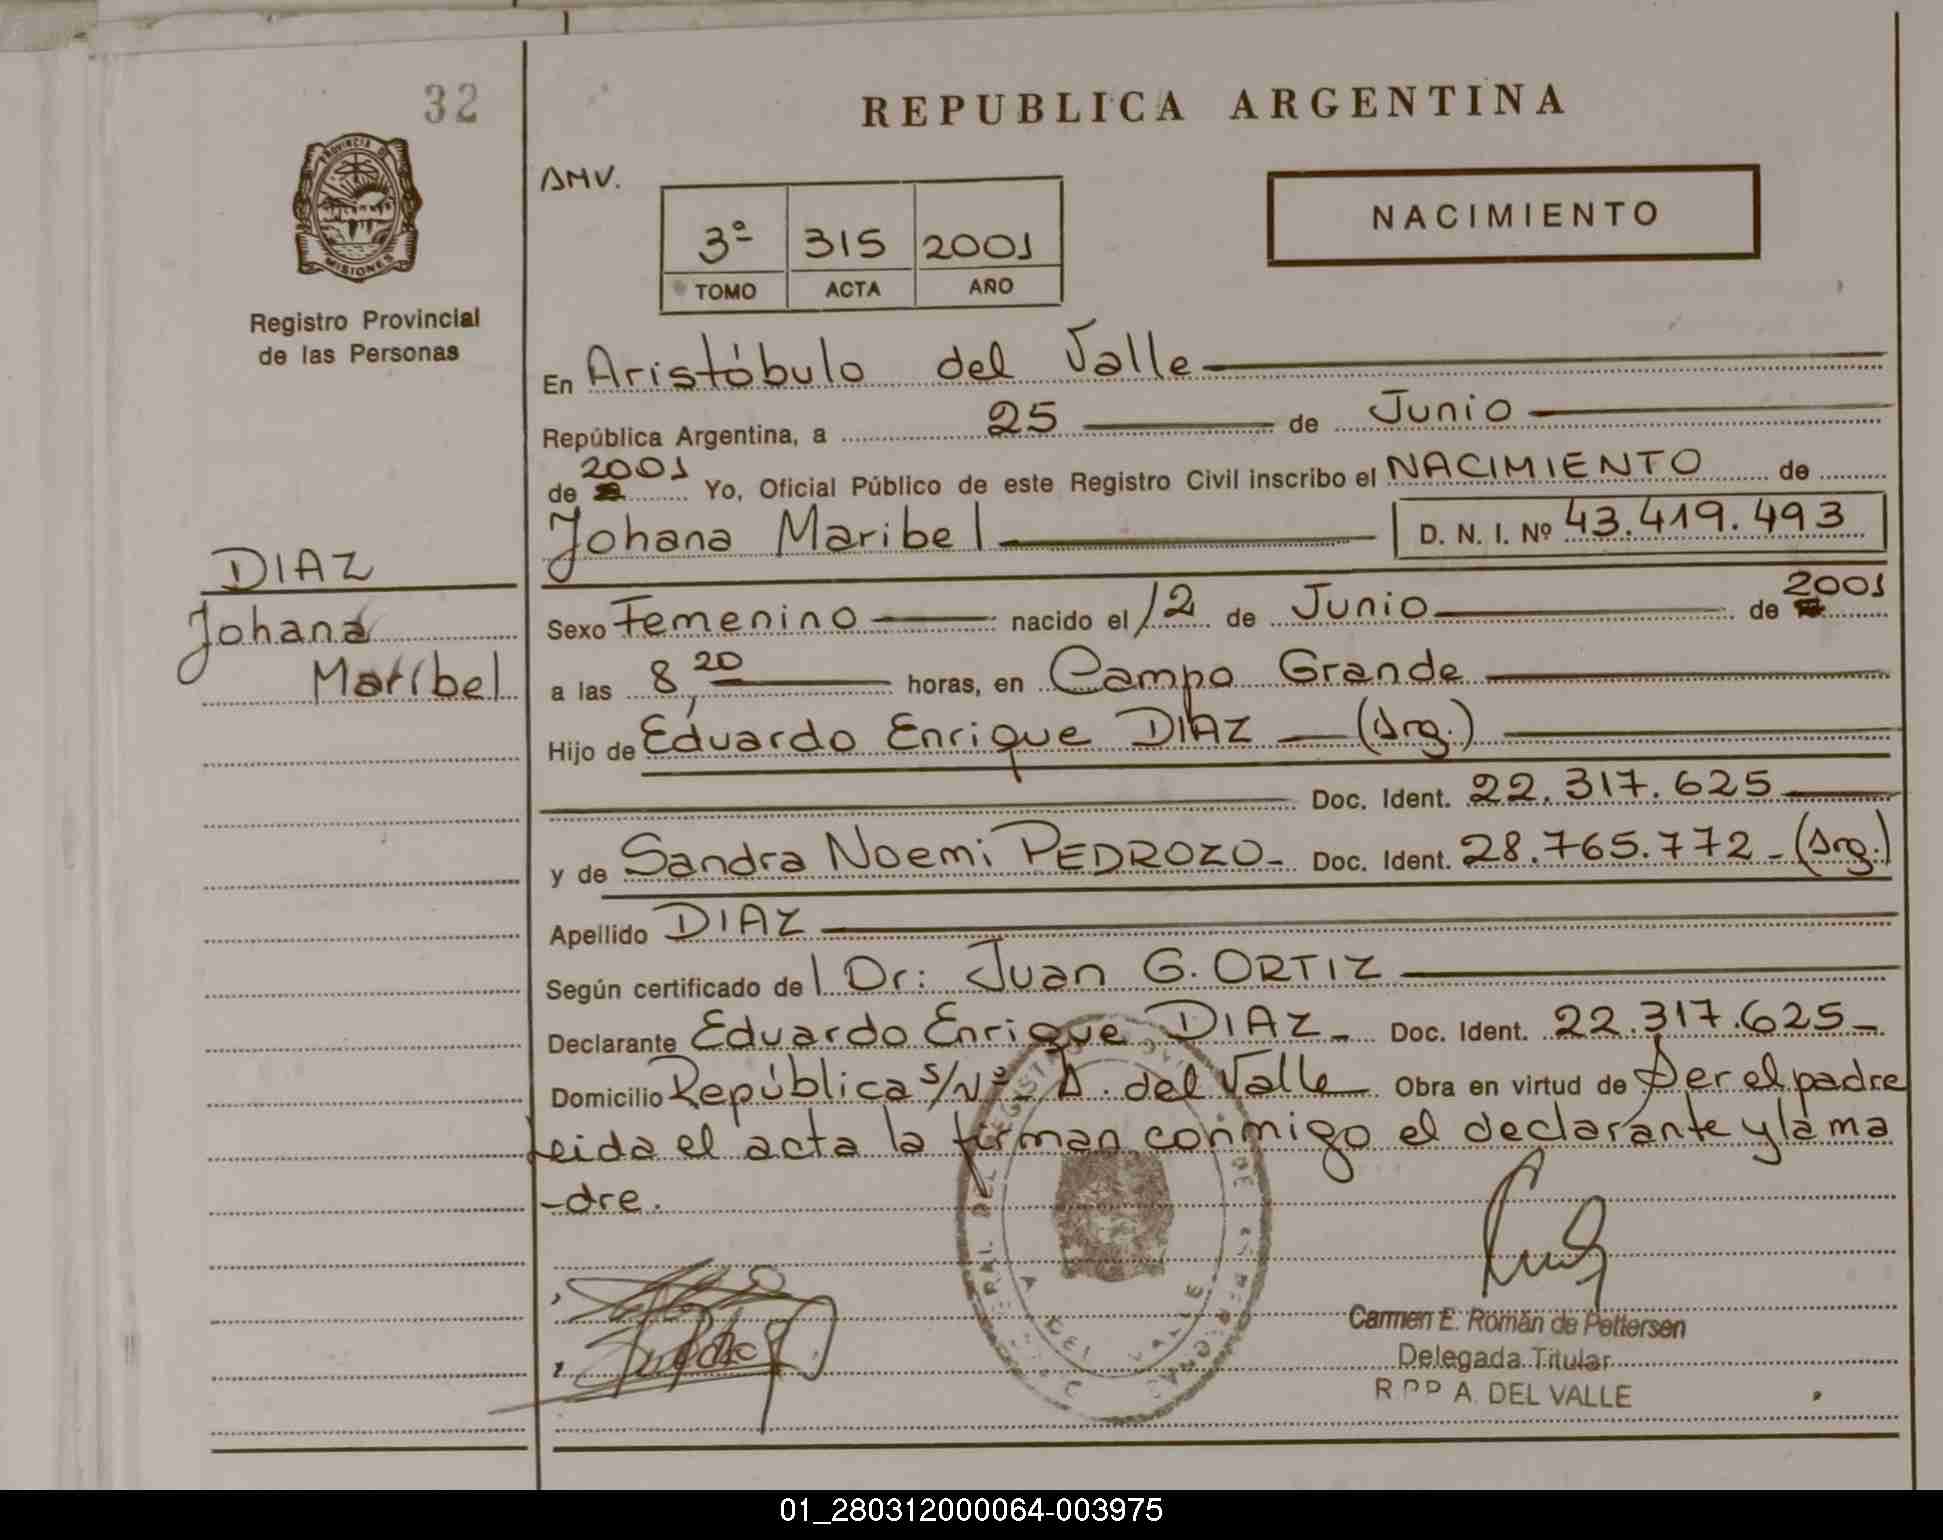 32
REPUBLICA ARGENTINA
PROVINCIA DE
MISIONES
Registro Provincial
de las Personas
AMV.
3ª 315 2001
TOMO ACTA AÑO
NACIMIENTO
En Aristóbulo del Valle
República Argentina, a 25 de Junio
de 2001 Yo, Oficial Público de este Registro Civil inscribo el NACIMIENTO de
Johana Maribel D. N. I. Nº 43.419.493
DIAZ
Johana
Maribel
Sexo Femenino nacido el 12 de Junio de 2001
a las 8,20 horas, en Campo Grande
Hijo de Eduardo Enrique DIAZ — (Arg.)
Doc. Ident. 22.317.625
y de Sandra Noemi PEDROZO - Doc. Ident. 28.765.772 - (Arg.)
Apellido DIAZ
Según certificado del Dr: Juan G. ORTIZ
Declarante Eduardo Enrique DIAZ - Doc. Ident. 22.317.625 -
Domicilio República s/Nº A. del Valle Obra en virtud de Ser el padre
Leida el acta la firman conmigo el declarante y la ma
-dre.
Carmen E. Román de Pettersen
Delegada Titular
R P P A. DEL VALLE
01_280312000064-003975